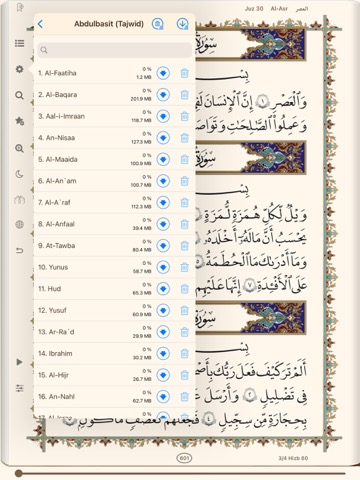 Juz 30 Al-Asr العصر
Abdulbasit (Tajwid)
1. Al-Faatiha 0 % 1.2 MB
2. Al-Baqara 0 % 201.9 MB
3. Aal-i-Imraan 0 % 118.7 MB
4. An-Nisaa 0 % 127.3 MB
5. Al-Maaida 0 % 100.9 MB
6. Al-An`am 0 % 100.7 MB
7. Al-A`raf 0 % 112.3 MB
8. Al-Anfaal 0 % 39.4 MB
9. At-Tawba 0 % 80.4 MB
10. Yunus 0 % 58.7 MB
11. Hud 0 % 65.3 MB
12. Yusuf 0 % 60.9 MB
13. Ar-Ra`d 0 % 29.9 MB
14. Ibrahim 0 % 30.2 MB
15. Al-Hijr 0 % 26.7 MB
16. An-Nahl 0 % 62.7 MB
سُورَة
وَالْعَصْرِ ١ إِنَّ الْإِنسَانَ
وَعَمِلُوا الصَّالِحَاتِ
سُورَة
وَيْلٌ لِّكُلِّ هُمَزَةٍ لُّمَزَةٍ
يَحْسَبُ أَنَّ مَالَهُ أَخْلَدَهُ
وَمَا أَدْرَاكَ مَا الْحُطَمَةُ
عَلَى الْأَفْئِدَةِ ٧ إِنَّهَا عَلَيْهِم
سُورَة
أَلَمْ تَرَ كَيْفَ فَعَلَ رَبُّكَ
فِي تَضْلِيلٍ ٢ وَأَرْسَلَ
بِحِجَارَةٍ مِّن سِجِّيلٍ ٤ فَجَعَلَهُمْ كَعَصْفٍ مَّأْكُولٍ
601 3/4 Hizb 60